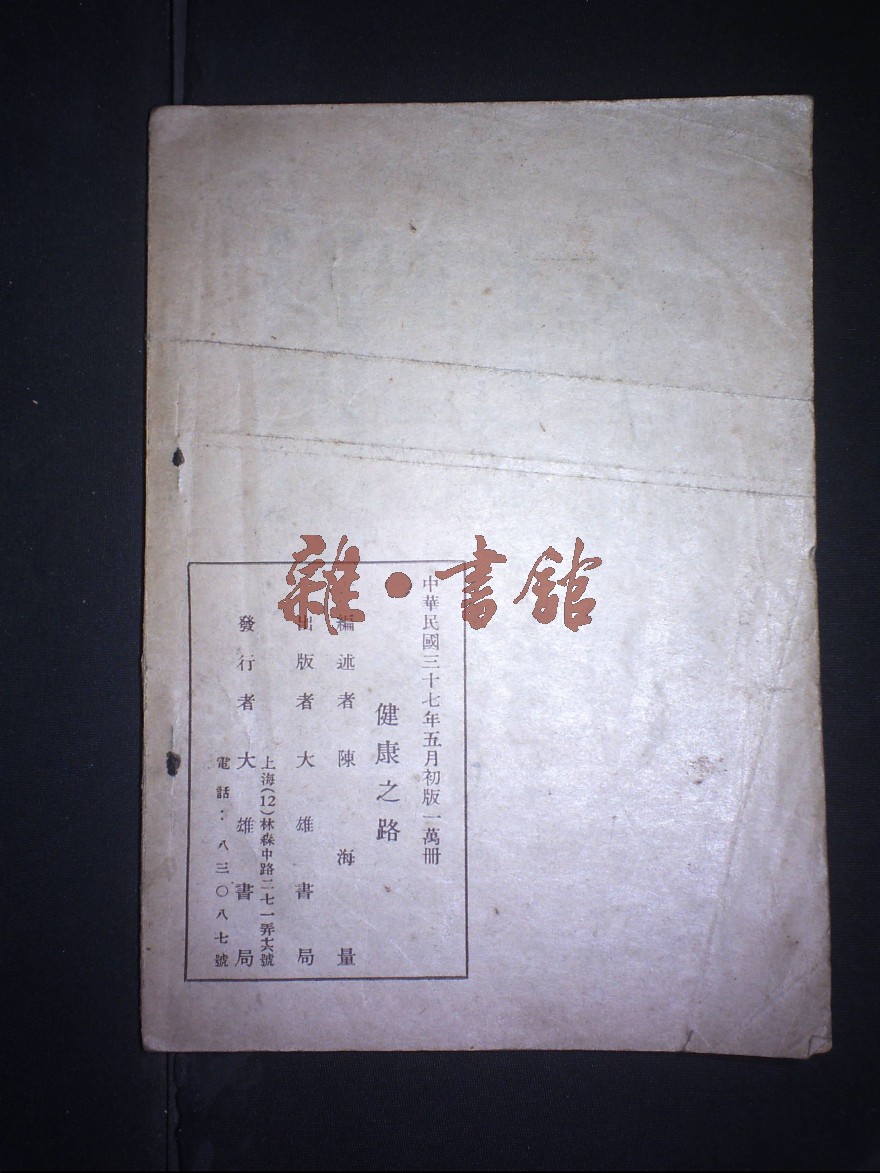 雜·書舘
中華民國三十七年五月初版一萬冊
健康之路
編述者 陳海量
出版者 大雄書局
上海(12)林森中路二七一弄大號
發行者 大雄書局
電話：八三〇八七號